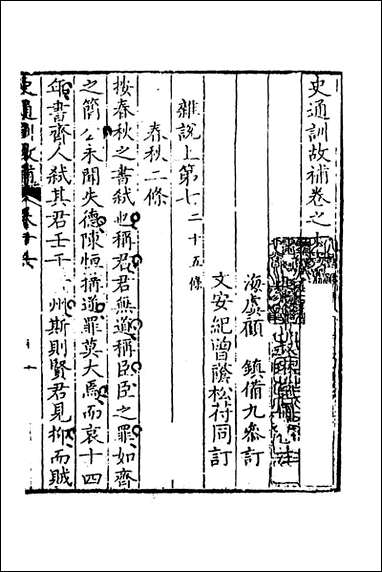 史通訓故補卷之十
海虞顧　鎮備九參訂
文安紀曾䕃松荇同訂
雜說上第七二十五條
春秋二條
按春秋之書弒也稱君君無道稱臣臣之罪如齊
之簡公未聞失德陳恒搆逆罪莫大焉而哀十四
年書齊人弒其君壬于　州斯則賢君見抑而賊
史通訓故補